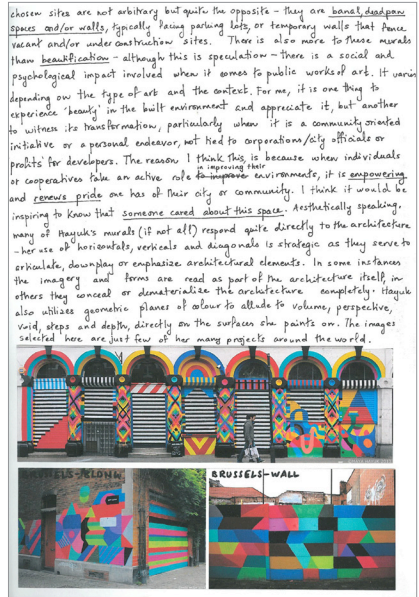 chosen sites are not arbitrary but quite the opposite - they are banal, deadpan
spaces and/or walls, typically facing parking lots, or temporary walls that fence
vacant and/or under construction sites. There is also more to these murals
than beautification - although this is speculation - there is a social and
psychological impact involved when it comes to public works of art. It varies
depending on the type of art and the context. For me, it is one thing to
experience 'beauty' in the built environment and appreciate it, but another
to witness its transformation, particularly when it is a community oriented
initiative or a personal endeavor, not tied to corporations/city officials or
profits for developers. The reason I think this, is because when individuals
or cooperatives take an active role in improving their to improve environments, it is empowering
and renews pride one has of their city or community. I think it would be
inspiring to know that someone cared about this space. Aesthetically speaking,
many of Hayuk's murals (if not all) respond quite directly to the architecture
- her use of horizontals, verticals and diagonals is strategic as they serve to
articulate, downplay or emphasize architectural elements. In some instances
the imagery and forms are read as part of the architecture itself, in
others they conceal or dematerialize the architecture completely. Hayuk
also utilizes geometric planes of colour to allude to volume, perspective,
void, steps and depth, directly on the surfaces she paints on. The images
selected here are just few of her many projects around the world.
BRUSSELS-WALL